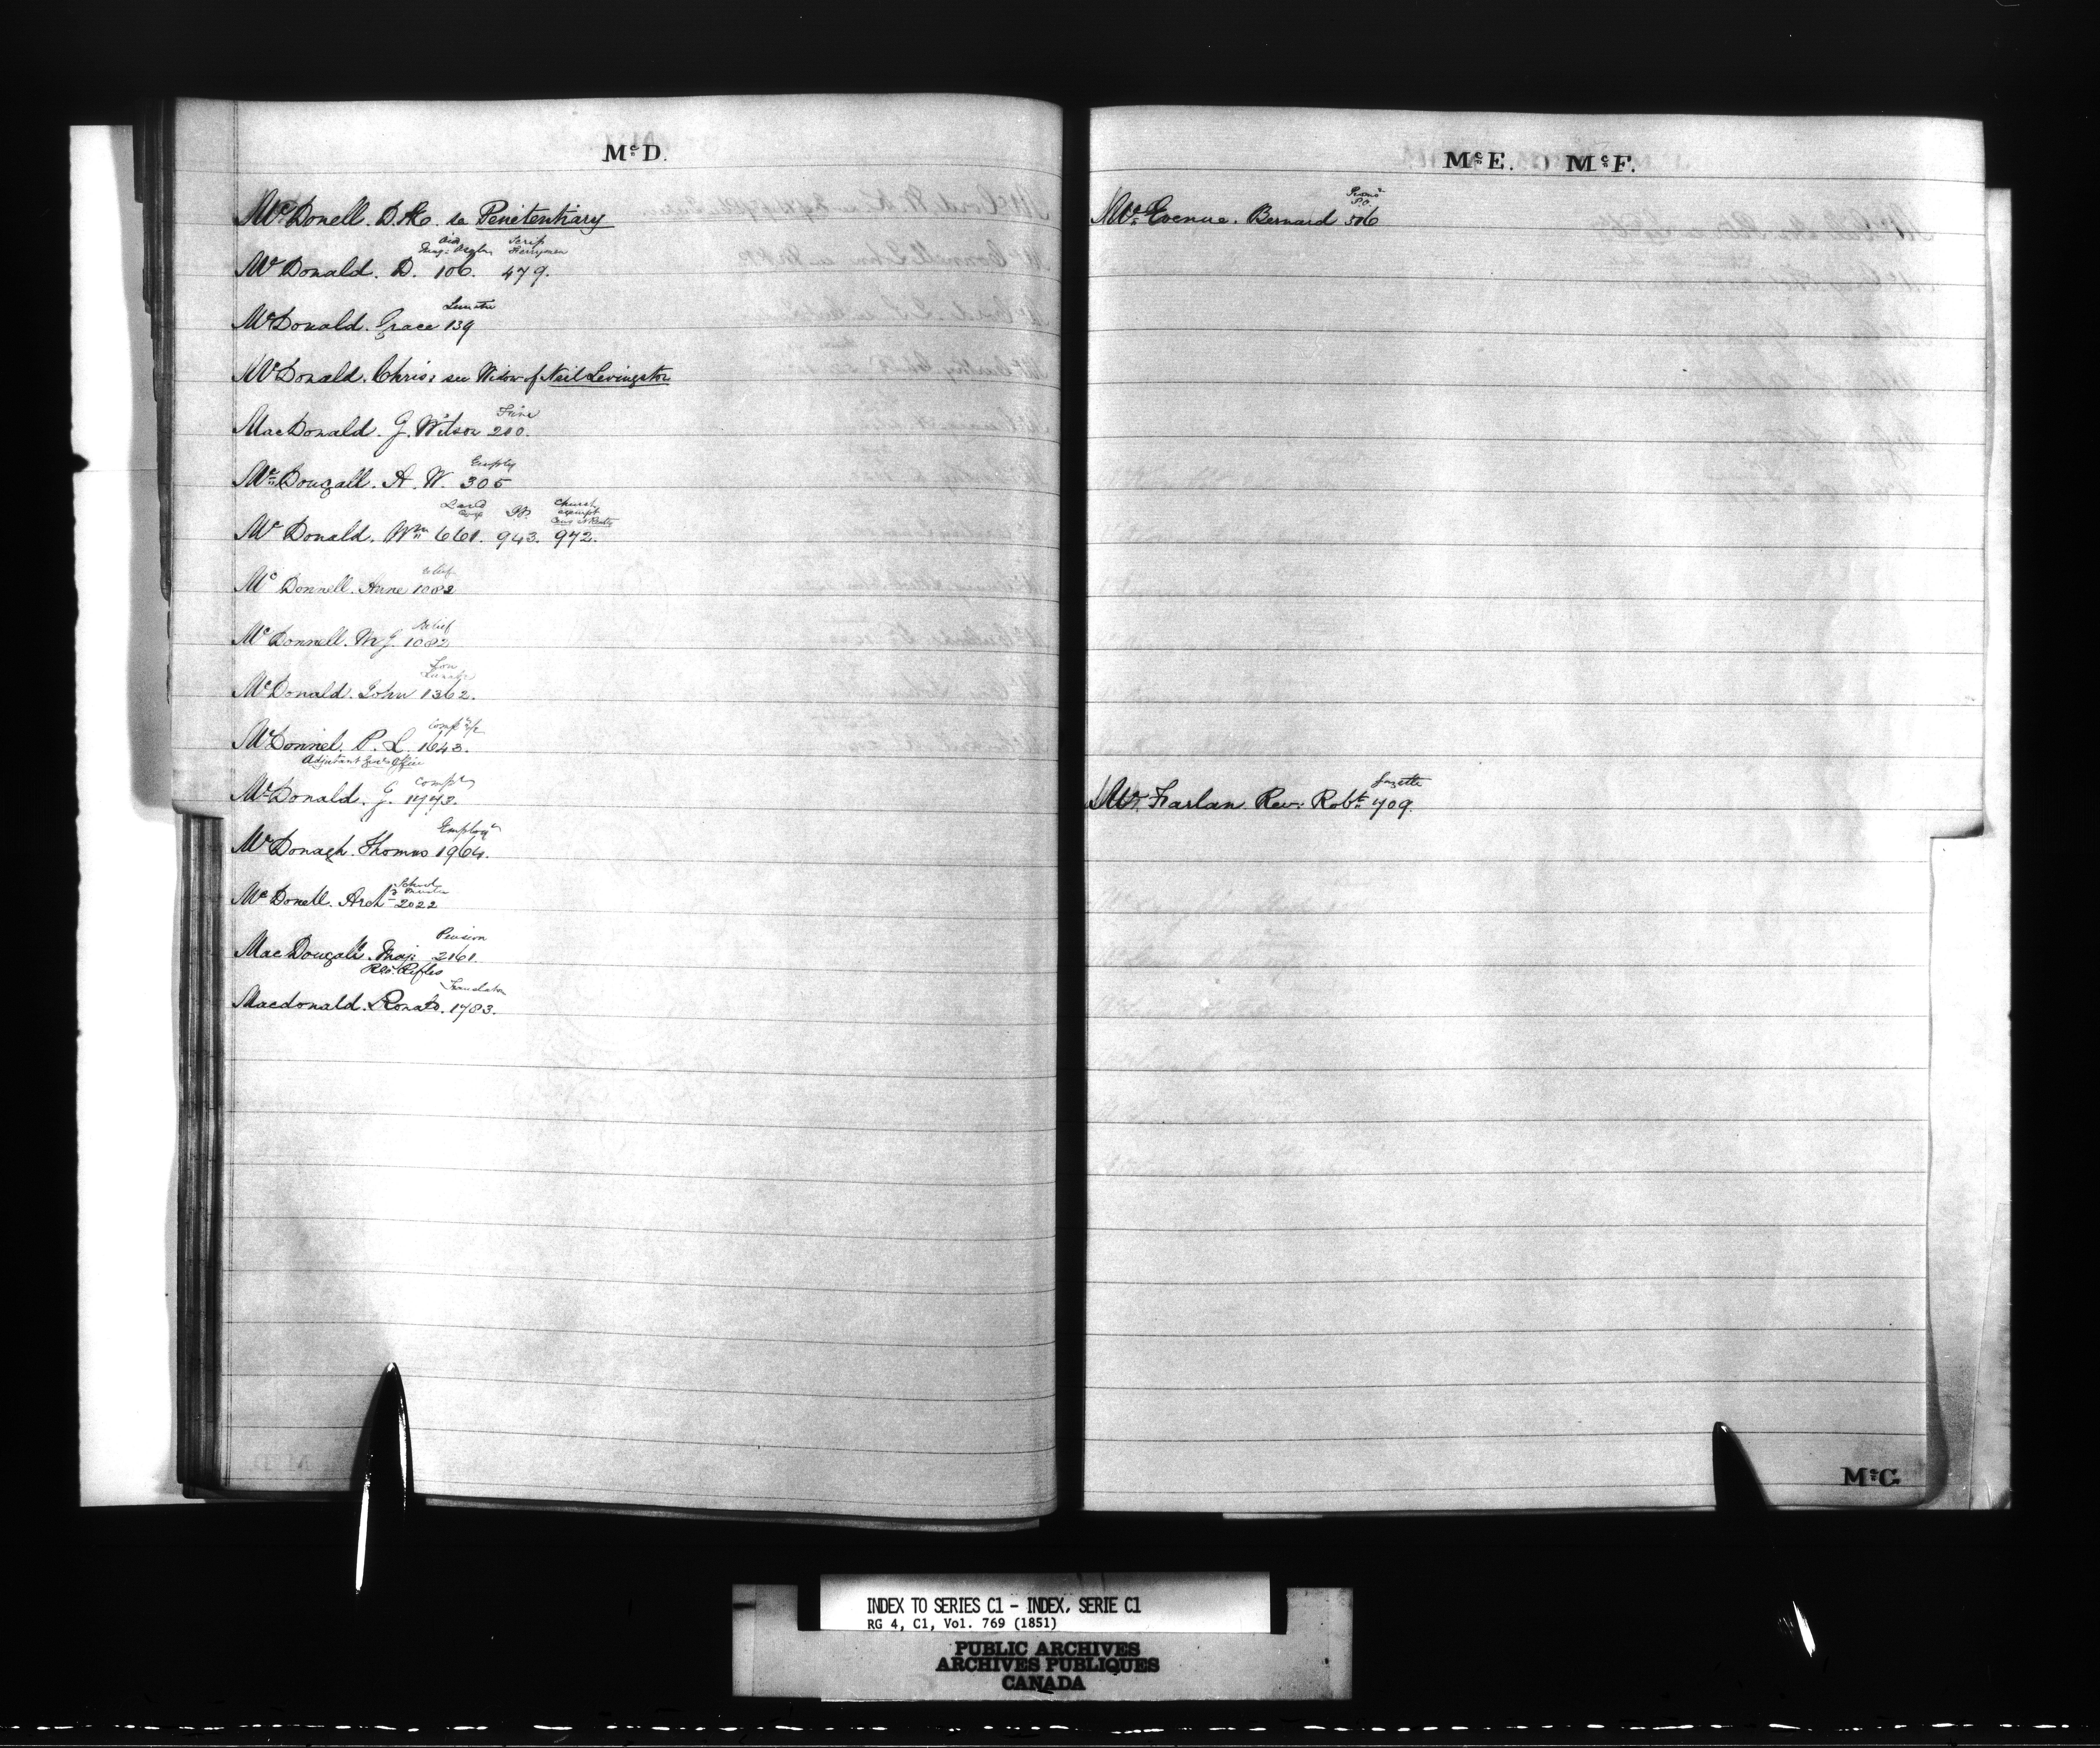 McD.
McDonell. D. Æ. see Penitentiary
Aid Scrip
Mag: Asylm Ferrymen
McDonald. D. 106. 479.
Lunatic
McDonald. Grace 139
McDonald. Chris: see Widow of Neil Levingston
Fine
MacDonald. G. Wilson 200.
Employ
McDougall. A. W. 305
Land Church
exempt
McDonald. Wm 661. 943. 972.
Relief
McDonnell. Anne 1082
Relief
McDonnell. M J. 1082
Lunatic
McDonald. John 1362.
McDonnel. P. L. 1643.
Adjutant Genls Office
Compt
McDonald. G. 1773.
Employt
McDonagh. Thomas 1964.
School
McDonell. Archd 2022
Pension
MacDougall. Maj: 2161.
Rl. Rifles
Translator
Macdonald. Ronald. 1783.
McE. McF.
P.O.
McEvenue. Bernard 506
Gazette
McFarlan Rev: Robt 709.
McG
INDEX TO SERIES C1 - INDEX, SERIE C1
RG 4, C1, Vol. 769 (1851)
PUBLIC ARCHIVES
ARCHIVES PUBLIQUES
CANADA